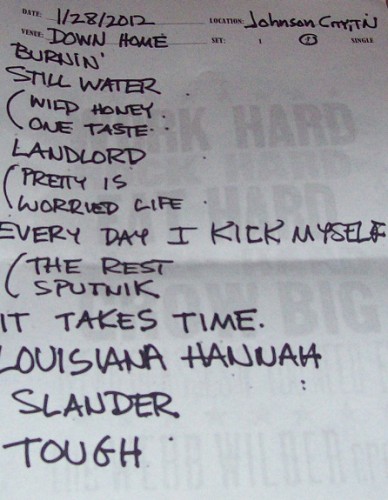 DATE: 1/28/2012 LOCATION: Johnson City, TN
VENUE: DOWN HOME SET: 1 2 SINGLE
BURNIN'
STILL WATER
WILD HONEY
ONE TASTE
LANDLORD
PRETTY IS
WORRIED LIFE
EVERY DAY I KICK MYSELF
THE REST
SPUTNIK
IT TAKES TIME.
LOUISIANA HANNAH
SLANDER
TOUGH
HARD
HARD
HARD
BIG
THE WEBB WILDER